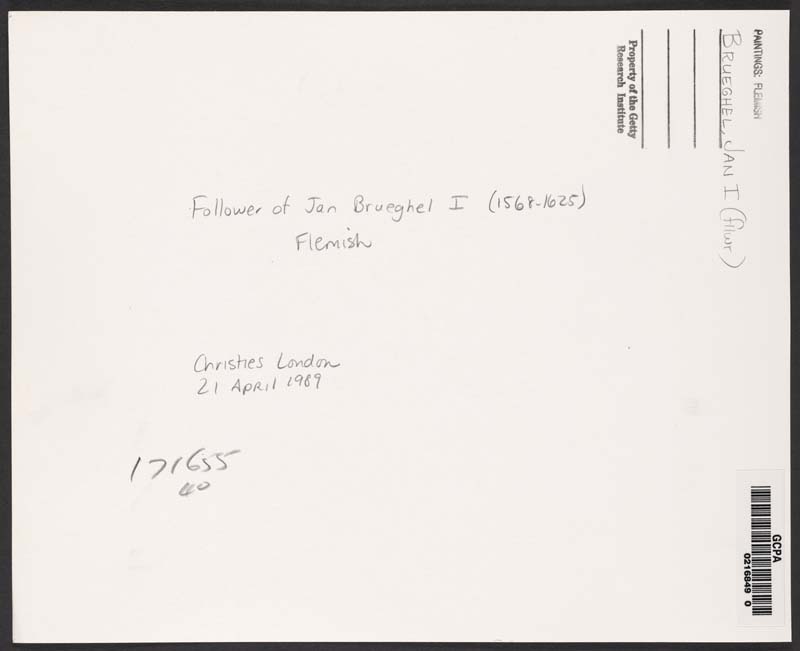 PAINTINGS: FLEMISH
BRUEGHEL, JAN I (fllwr)
Property of the Getty
Research Institute
Follower of Jan Brueghel I (1568-1625)
Flemish
Christies London
21 April 1989
171655
40
GCPA
0216849 0